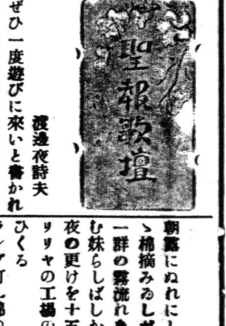 聖報歌壇
渡邊夜詩夫
ぜひ一度遊びに來いと書かれ
朝露にぬれに
ゝ棉摘みゐし
一群の霧流れ
む妹らしばしか
夜の更けを十五
リリヤの工場の
ひくる